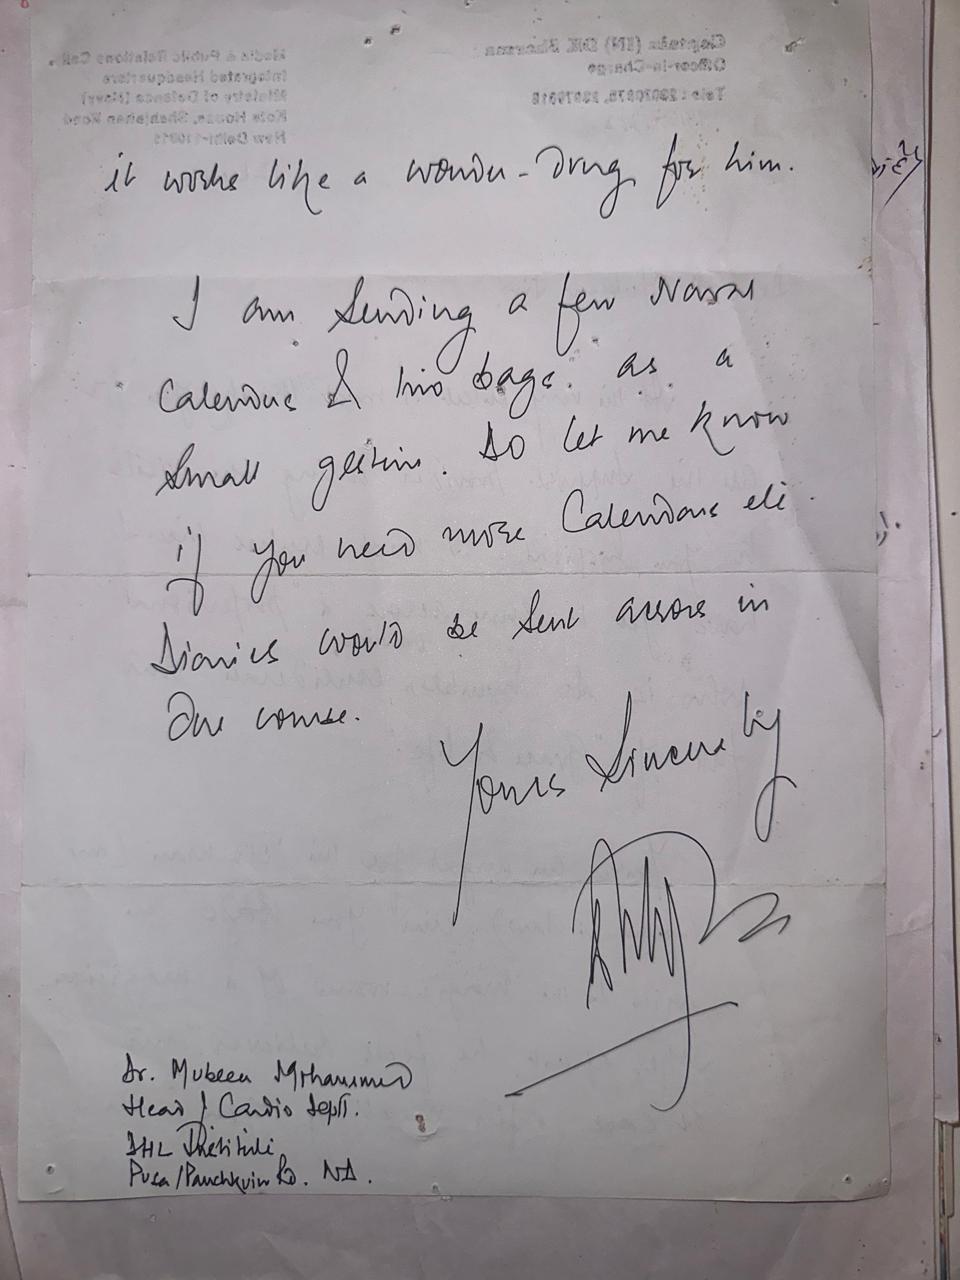 it works like a wonder-drug for him.
I am sending a few Naval
Calendars & two bags. as a
small gesture. Do let me know
if you need more Calendars etc.
Diaries would be sent across in
due course.
Yours Sincerely
Dr. Mubeen Mohammed
Head / Cardio Deptt.
Institute
Pusa/Panchkuin Rd. ND.
Captain (IN) DK Sharma
Officer-in-Charge
Media & Public Relations Cell
Integrated Headquarters
Ministry of Defence (Navy)
Kota House, Shahjahan Road
New Delhi-110011